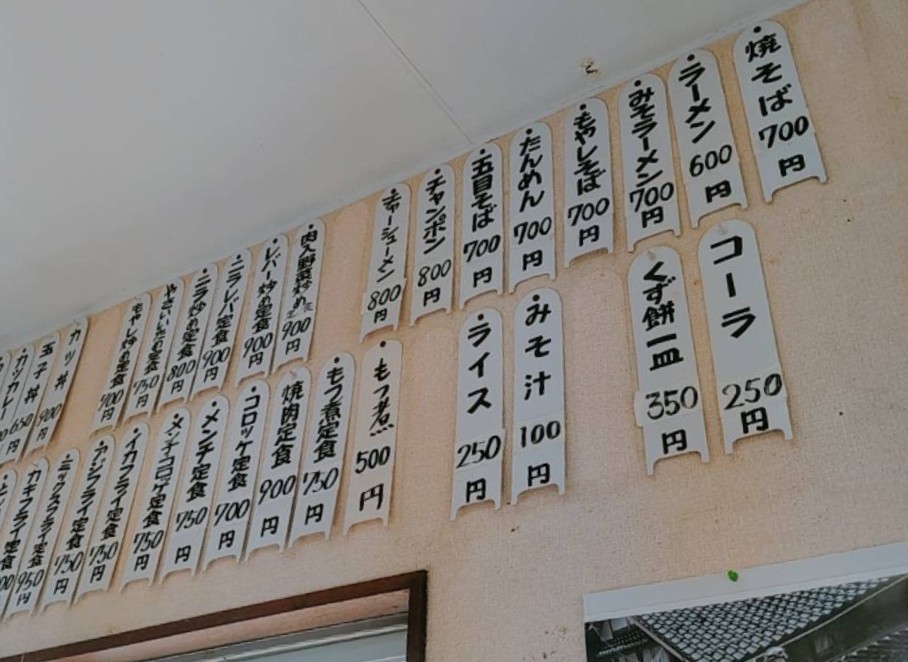 焼そば 700円
ラーメン 600円
みそラーメン 700円
もやしそば 700円
たんめん 700円
五目そば 700円
チャンポン 800円
チャーシューメン 800円
肉入野菜炒め定食 900円
レバー炒め定食 900円
ニラレバ定食 900円
ニラ炒め定食 800円
やさいいため定食 750円
もやし炒め定食 700円
カツ丼 900円
玉子丼 650円
カツカレー
コーラ 250円
くず餅一皿 350円
みそ汁 100円
ライス 250円
もつ煮 500円
もつ煮定食 750円
焼肉定食 900円
コロッケ定食 700円
メンチ定食 750円
メンチコロッケ定食 750円
イカフライ定食 750円
アジフライ定食 750円
ミックスフライ定食 750円
カキフライ定食 950円